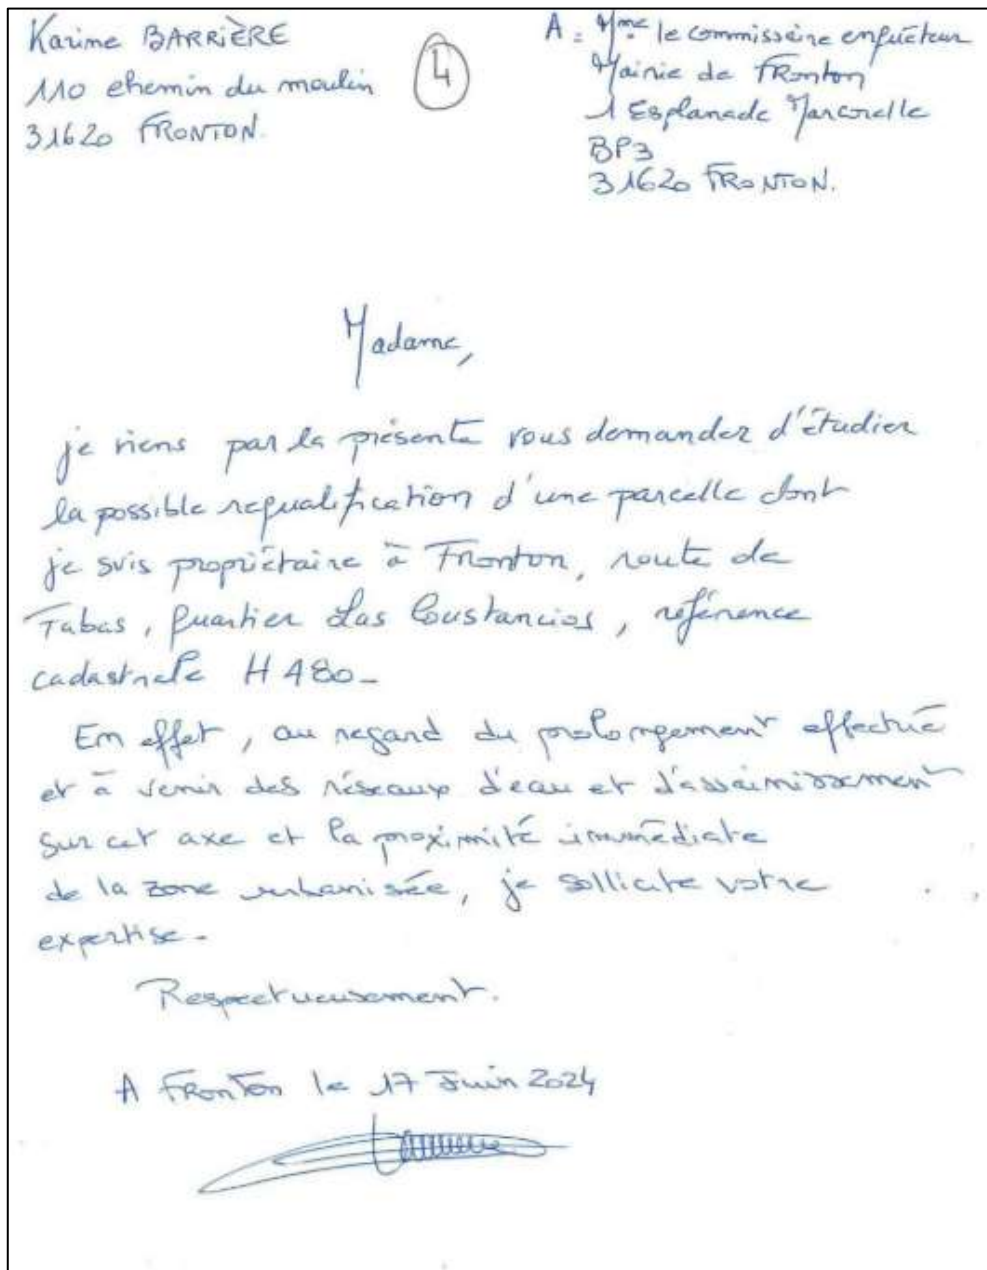 Karine BARRIÈRE
110 chemin du moulin
31620 FRONTON.
4
A : Mme le commissaire enquêteur
Mairie de FRonton
1 Esplanade Marcorelle
BP3
31620 FRONTON.
Madame,
je viens par la présente vous demander d'étudier
la possible requalification d'une parcelle dont
je suis propriétaire à Fronton, route de
Fabas, quartier Las Coustancios, référence
cadastrale H 480-
En effet, au regard du prolongement effectué
et à venir des réseaux d'eau et d'assainissement
sur cet axe et la proximité immédiate
de la zone urbanisée, je sollicite votre
expertise-
Respectueusement.
A FRonton le 17 Juin 2024